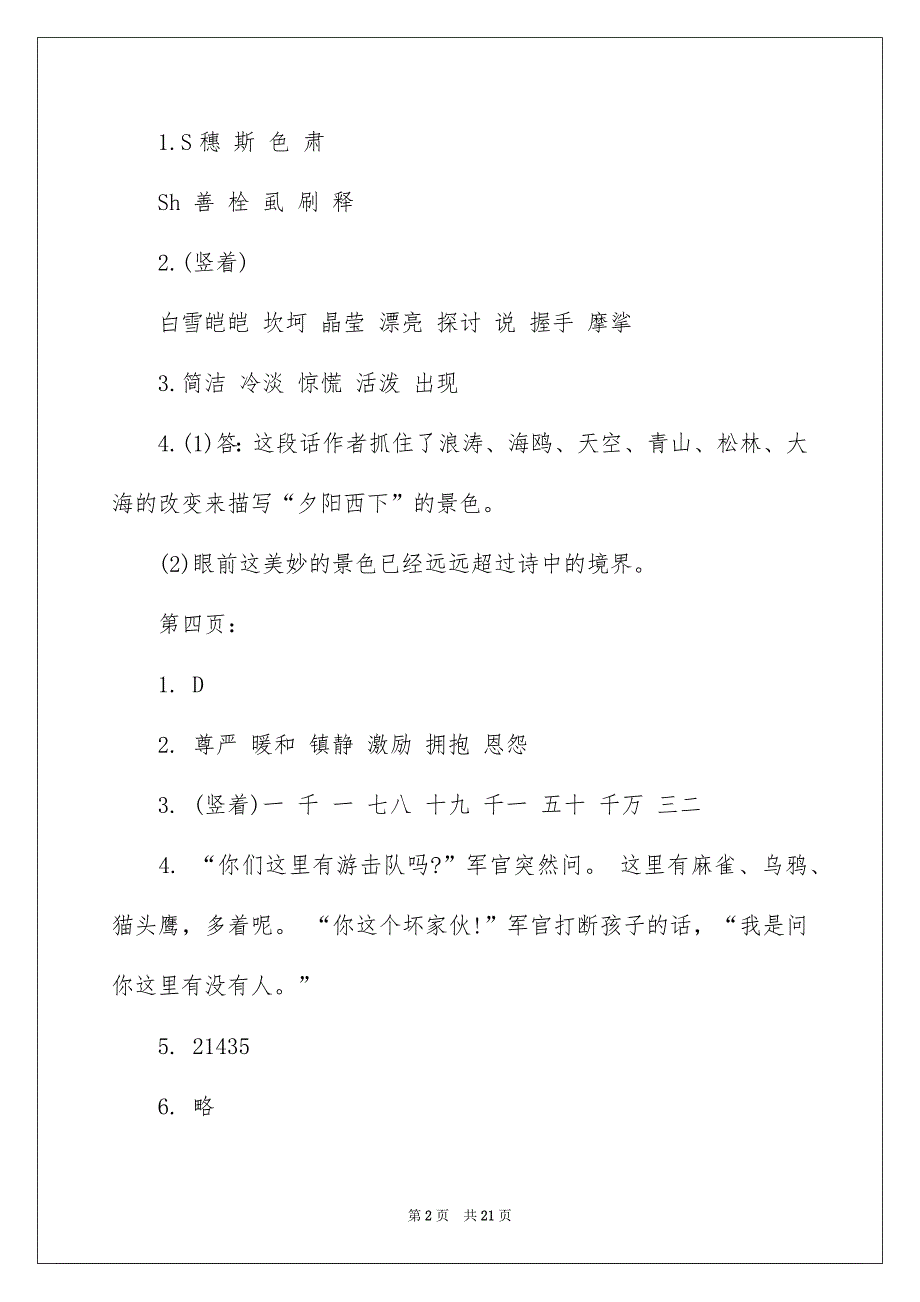 1.S穗 斯 色 肃
Sh 善 栓 虱 刷 释
2.(竖着)
白雪皑皑 坎坷 晶莹 漂亮 探讨 说 握手 摩挲
3.简洁 冷淡 惊慌 活泼 出现
4.(1)答：这段话作者抓住了浪涛、海鸥、天空、青山、松林、大
海的改变来描写“夕阳西下”的景色。
(2)眼前这美妙的景色已经远远超过诗中的境界。
第四页：
1. D
2. 尊严 暖和 镇静 激励 拥抱 恩怨
3. (竖着)一 千 一 七八 十九 千一 五十 千万 三二
4. “你们这里有游击队吗?”军官突然问。 这里有麻雀、乌鸦、
猫头鹰，多着呢。 “你这个坏家伙!”军官打断孩子的话，“我是问
你这里有没有人。”
5. 21435
6. 略
第 2 页 共 21 页